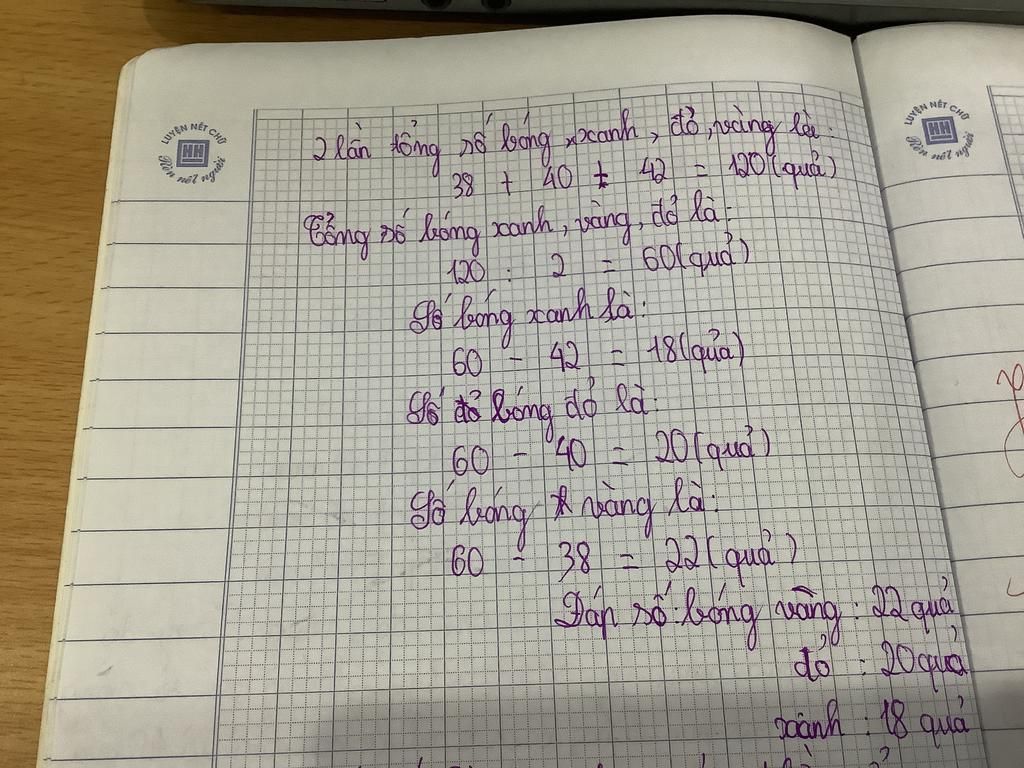 LUYỆN NÉT CHỮ
HH
Rèn nết người
LUYỆN NÉT CHỮ
HH
Rèn nết người
2 lần tổng số bóng xanh, đỏ, vàng là:
38 + 40 + 42 = 120 (quả)
Tổng số bóng xanh, vàng, đỏ là:
120 : 2 = 60 (quả)
Số bóng xanh là:
60 - 42 = 18 (quả)
Số bóng đỏ là:
60 - 40 = 20 (quả)
Số bóng vàng là:
60 - 38 = 22 (quả)
Đáp số: bóng vàng: 22 quả
đỏ : 20 quả
xanh : 18 quả